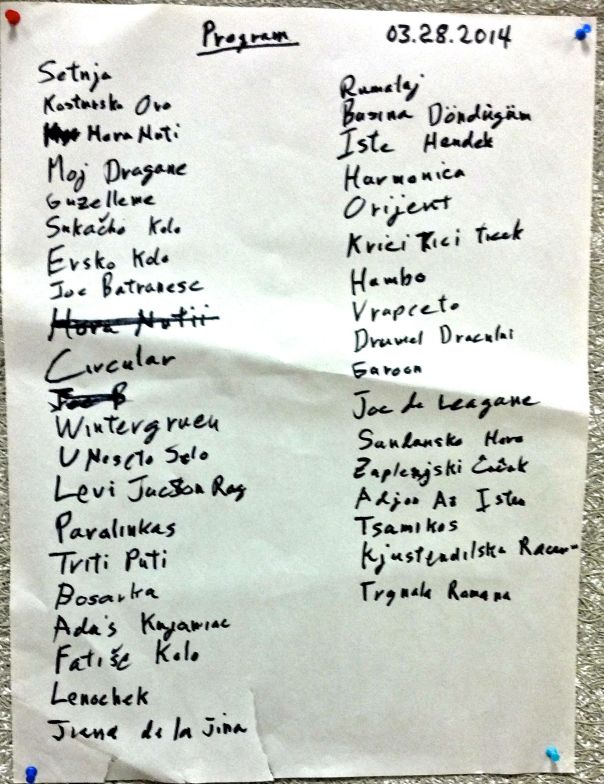 Program 03.28.2014
Setnja
Kostursko Oro
Hora Nuti
Moj Dragane
Guzelleme
Sukačko Kolo
Ersko Kolo
Joc Batranesc
Hora Nutii
Circular
Joc B
Wintergruen
U Naseto Selo
Levi Jackson Rag
Paralinkas
Triti Puti
Bosarka
Ada's Kujawiac
Fatiše Kolo
Lenochek
Jiena de la Jina
Rumalaj
Basina Döndügüm
Iste Hendek
Harmonica
Orijent
Krici Krici Ticek
Hambo
Vrapceto
Drumul Dracului
Garoon
Joc de Leagane
Sandansko Horo
Zaplanjski Čačak
Adjon Az Isten
Tsamikos
Kjustendilska Racen
Trgnala Rumana